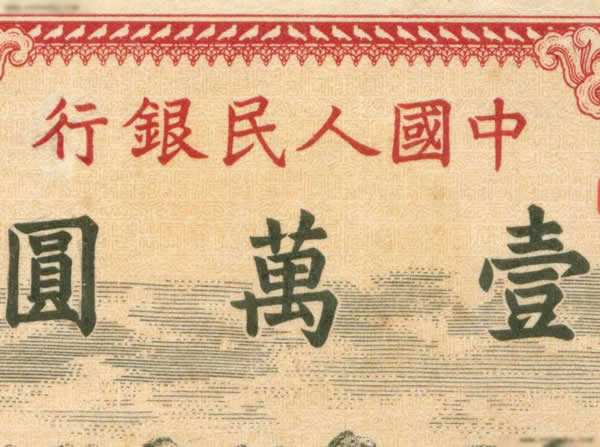 中國人民銀行
壹萬圓